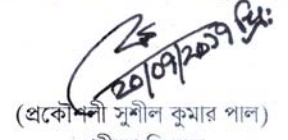 ২০/০৭/২০১৭ খ্রিঃ
(প্রকৌশলী সুশীল কুমার পাল)